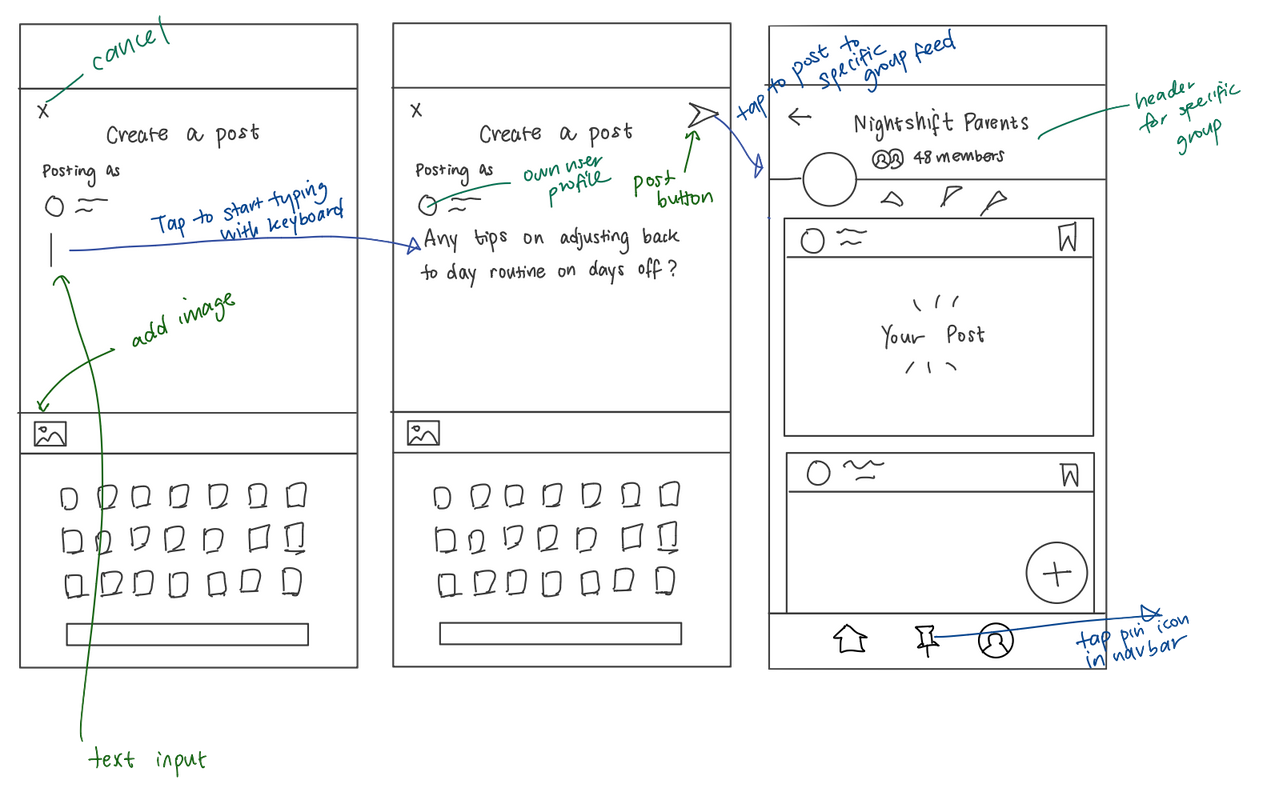 cancel
X
Create a post
Posting as
Tap to start typing
with keyboard
add image
text input
X
Create a post
Posting as
own user
profile
post
button
Any tips on adjusting back
to day routine on days off?
tap to post to
specific
group feed
Nightshift Parents
48 members
header
for specific
group
Your Post
tap pin icon
in navbar